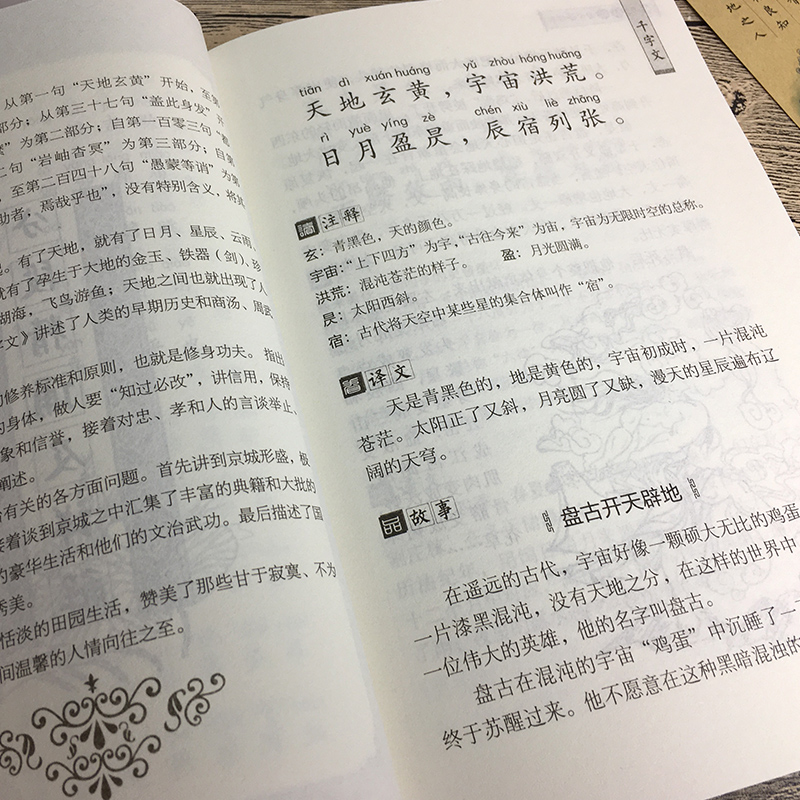 从第一句“天地玄黄”开始，至第
部分；从第三十七句“盖此身发”开
”为第二部分；自第一百零三句“都
二句“岩岫杳冥”为第三部分；自第
，至第二百四十八句“愚蒙等诮”为第
助者，焉哉乎也”，没有特别含义，将其
。有了天地，就有了日月、星辰、云雨、
就有了孕生于大地的金玉、铁器（剑）、珍
湖海，飞鸟游鱼；天地之间也就出现了人
字文》讲述了人类的早期历史和商汤、周武
的修养标准和原则，也就是修身功夫。指出
的身体，做人要“知过必改”，讲信用，保持
象和信誉，接着对忠、孝和人的言谈举止、
阐述。
有关的各方面问题。首先讲到京城形盛，极
接着谈到京城之中汇集了丰富的典籍和大批的
的豪华生活和他们的文治武功。最后描述了国
秀美。
恬淡的田园生活，赞美了那些甘于寂寞、不为
间温馨的人情向往之至。
千字文
tiān dì xuán huáng yǔ zhòu hóng huāng
天地玄黄，宇宙洪荒。
rì yuè yíng zè chén xiù liè zhāng
日月盈昃，辰宿列张。
注释
玄：青黑色，天的颜色。
宇宙：“上下四方”为宇，“古往今来”为宙，宇宙为无限时空的总称。
洪荒：混沌苍茫的样子。 盈：月光圆满。
昃：太阳西斜。
宿：古代将天空中某些星的集合体叫作“宿”。
译文
天是青黑色的，地是黄色的，宇宙初成时，一片混沌
苍茫。太阳正了又斜，月亮圆了又缺，漫天的星辰遍布辽
阔的天穹。
品 故事
盘古开天辟地
在遥远的古代，宇宙好像一颗硕大无比的鸡蛋
一片漆黑混沌，没有天地之分，在这样的世界中
一位伟大的英雄，他的名字叫盘古。
盘古在混沌的宇宙“鸡蛋”中沉睡了一
终于苏醒过来。他不愿意在这种黑暗混浊的
良知
地之人